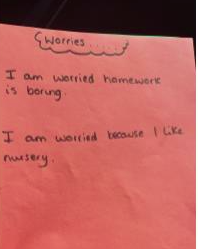 Worries
I am worried homework
is boring.
I am worried because I like
nursery.